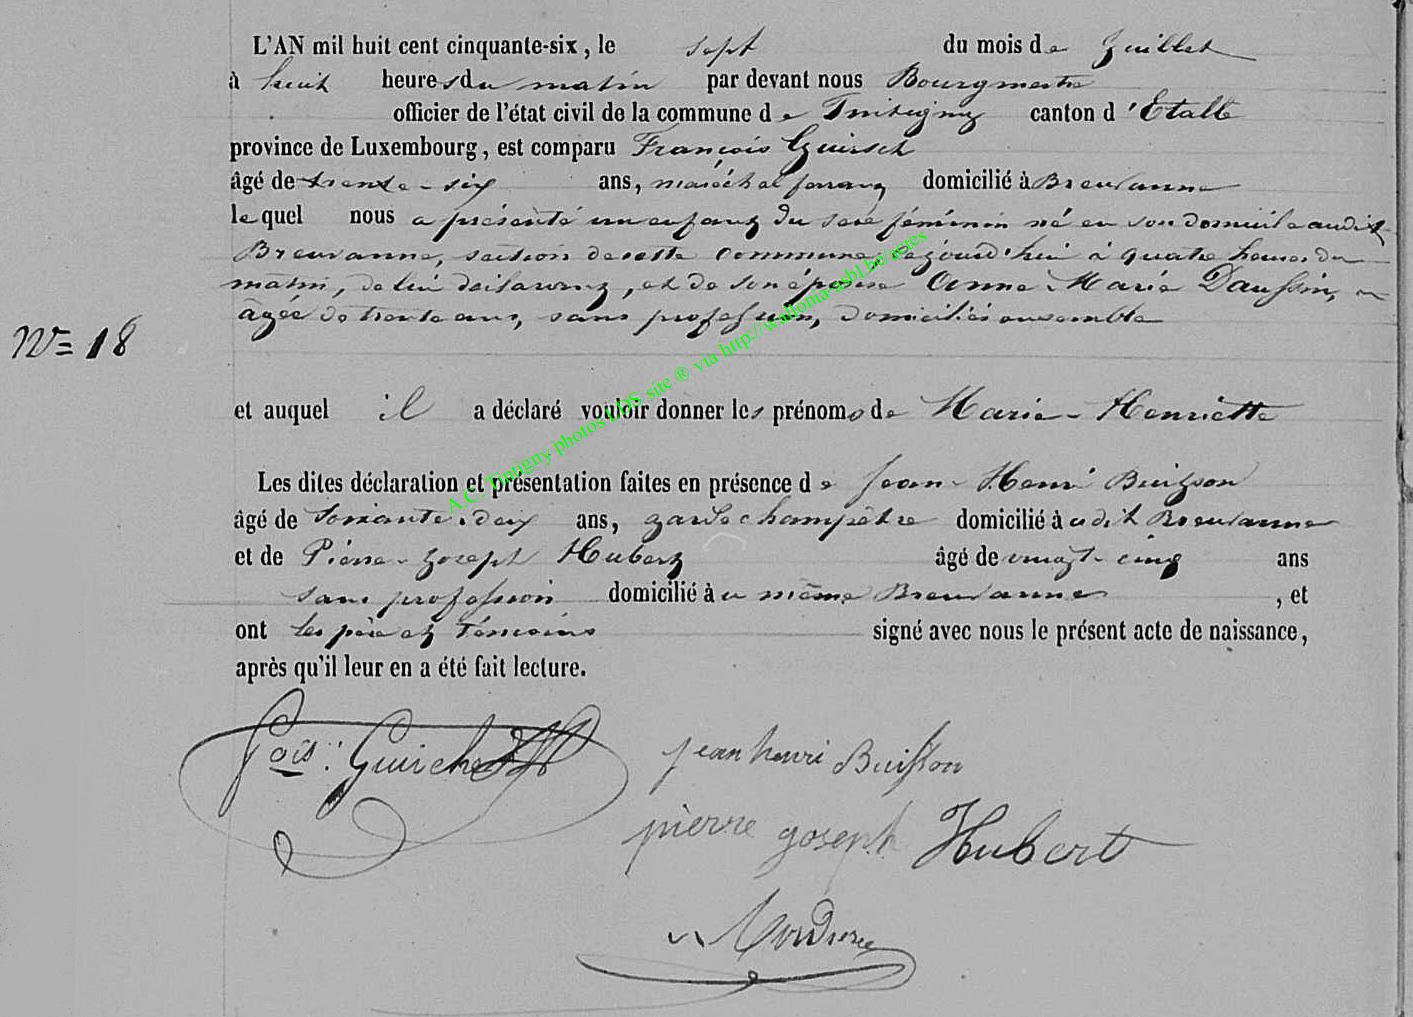 L'AN mil huit cent cinquante-six, le sept du mois de Juillet
à huit heures du matin par devant nous Bourgmestre
officier de l'état civil de la commune de Tintigny canton d'Etalle
province de Luxembourg, est comparu François
âgé de trente-six ans, maréchal ferrant domicilié à Breuvanne
lequel nous a présenté un enfant du sexe féminin né en son domicile audit
Breuvanne, section de cette commune, aujourd'hui à quatre heures du
matin, de lui déclarant, et de son épouse Anne Marie
âgée de trente ans, sans profession, domiciliés ensemble
N= 18
et auquel il a déclaré vouloir donner les prénoms de Marie-Henriette
Les dites déclaration et présentation faites en présence de Jean-Henri Buisson
âgé de soixante-dix ans, garde champêtre domicilié à udit Breuvanne
et de Pierre-Joseph Hubert âgé de vingt-cinq ans
sans profession domicilié à u même Breuvanne, et
ont les père et témoins signé avec nous le présent acte de naissance,
après qu'il leur en a été fait lecture.
jean henri Buisson
pierre joseph Hubert
A.C. Tintigny photos LDS site ® via http://wallonia-asbl.be/actes